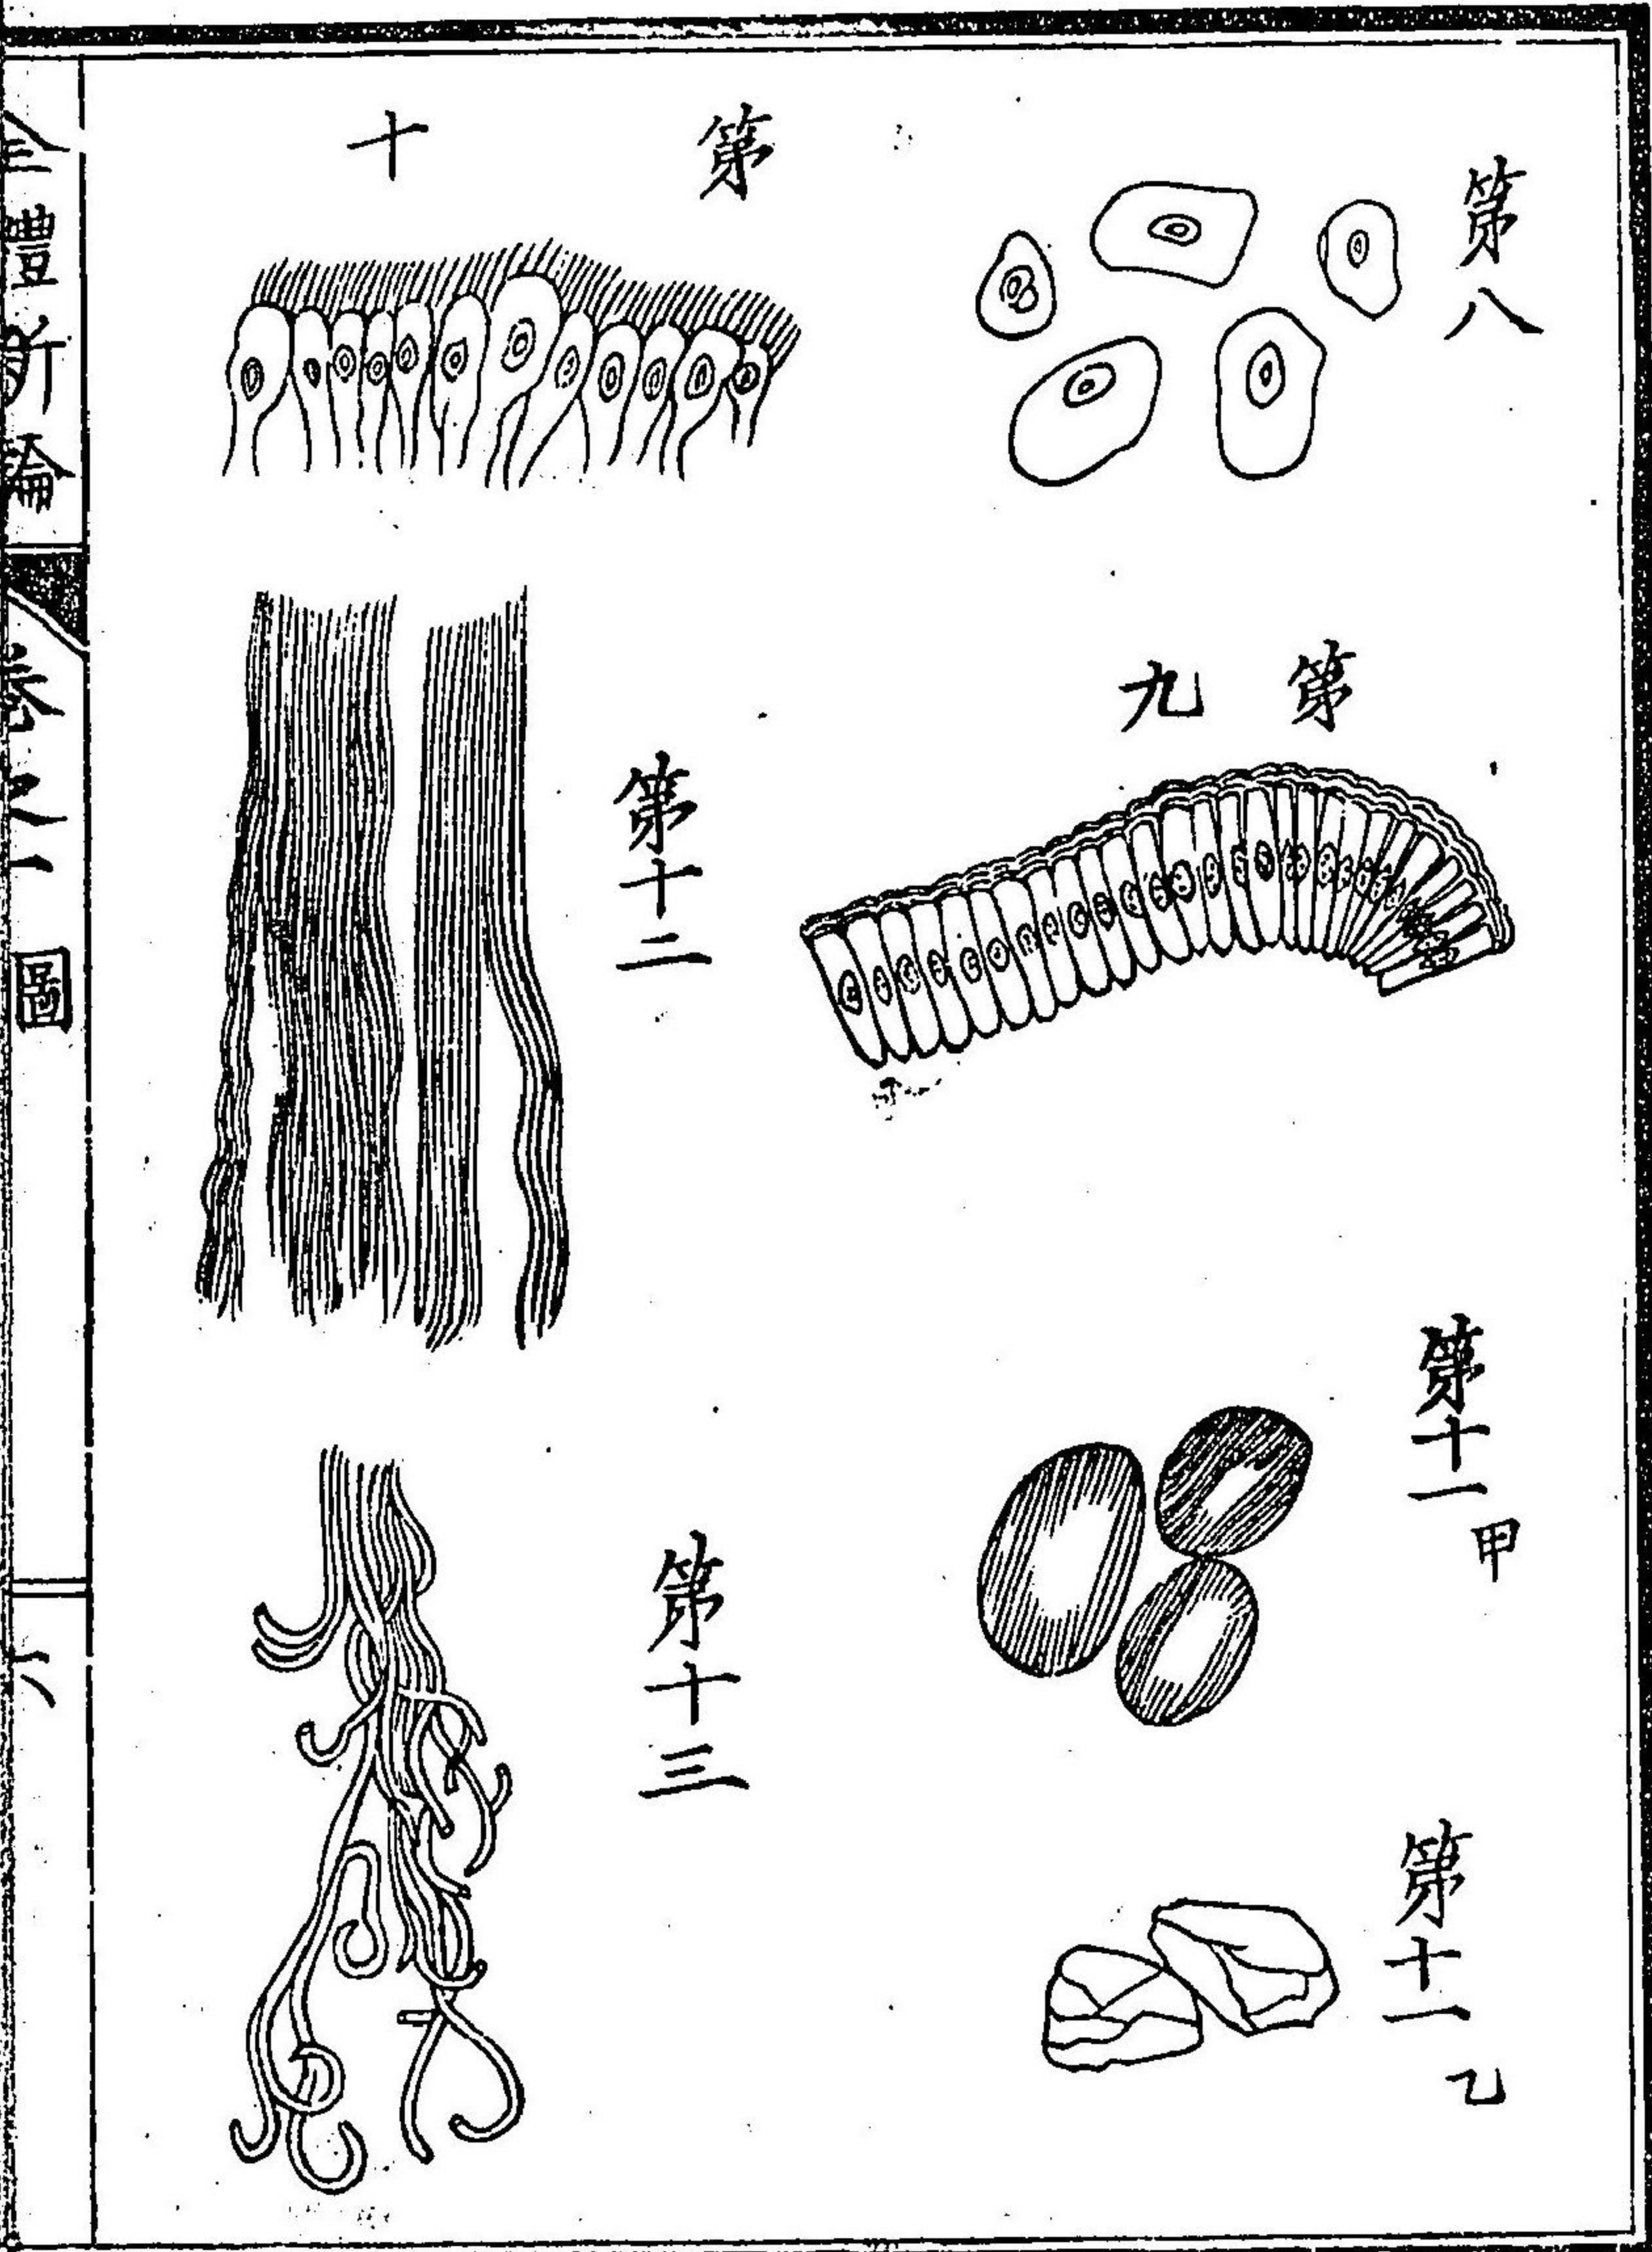 第八
第九
第十一甲
第十一乙
第十
第十二
第十三
全體新論
卷之一圖
六